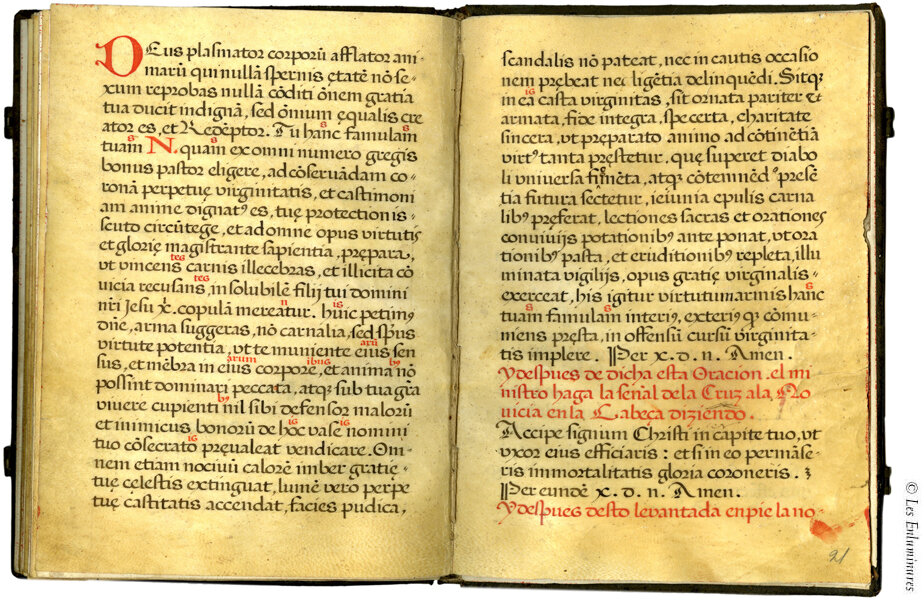 DEus plasmator corporū afflator ani-
marū qui nullā spernis ętatē nō se-
xum reprobas nullā cōditi ōnem gratia
tua ducit indignā, sed ōmium ęqualis cre
ator es, et Redēptor. Tu hanc famulam
s s
tuam N. quam ex omni numero gregis
s s
bonus pastor eligere, ad cōseruādam co-
ronā perpetuę virginitatis, et castimoni
am animę dignatꝰ es, tuę protectionis
scuto circūtege, et ad omne opus virtutis
et glorię magistrante sapientia, prępara,
vt vincens carnis illecebras, et illicita cō
tes
uicia recusans, in solubilē filij tui domini
tes
nr̄i Jesu x̄. copulā mereatur. huic petimꝰ
n is
dn̄e, arma suggeras, nō carnalia, sed sp̄us
virtute potentia, vt te muniente eius sen
arū
sus, et mēbra in eius corpore, et anima nō
arum ibus bꝰ
possint dominari peccata, atqꝫ sub tua gr̄a
viuere cupienti nil sibi defensor malorū
bꝰ
et inimicus bonorū de hoc vase nomini
is is
tuo cōsecrato pręualeat vendicare. Om-
is
nem etiam nociuū calorē imber gratię
tuę celestis extinguat, lumē vero perpe
tuę castitatis accendat, facies pudica,
scandalis nō pateat, nec in cautis occasio
nem prębeat necligētia delinquēdi. Sitqꝫ
in ea casta virginitas, sit ornata pariter et
is
armata, fide integra, spe certa, charitate
sincera, vt pręparato animo ad cōtinētiā
virtꝰ tanta pręstetur, quę superet diabo
li vniuersa figmēta, atqꝫ cōtemnēdo presē
tia futura sectetur, ieiunia epulis carna
libꝰ pręferat, lectiones sacras et orationes
conuiuijs potationibꝰ ante ponat, vt ora
tionibꝰ pasta, et eruditionibꝰ repleta, illu
minata vigilijs, opus gratię virginalis
exerceat, his igitur virtutum armis hanc
s
tuam famulam interiꝰ, exteriꝰ qꝫ cōmu-
s s
niens pręsta, in offensū cursū virginita-
tis implere. Per x. d. n. Amen.
Y despues de dicha esta Oracion. el mi
nistro haga la señal dela Cruz ala No
uicia en la Cabeça diziendo.
Accipe signum Christi in capite tuo, vt
vxor eius efficiaris: et si in eo permāse-
ris immortalitatis gloria coroneris. ꝫ
Per eundē x. d. n. Amen.
Y despues desto levantada en pie la no-
21
© Les Enluminures